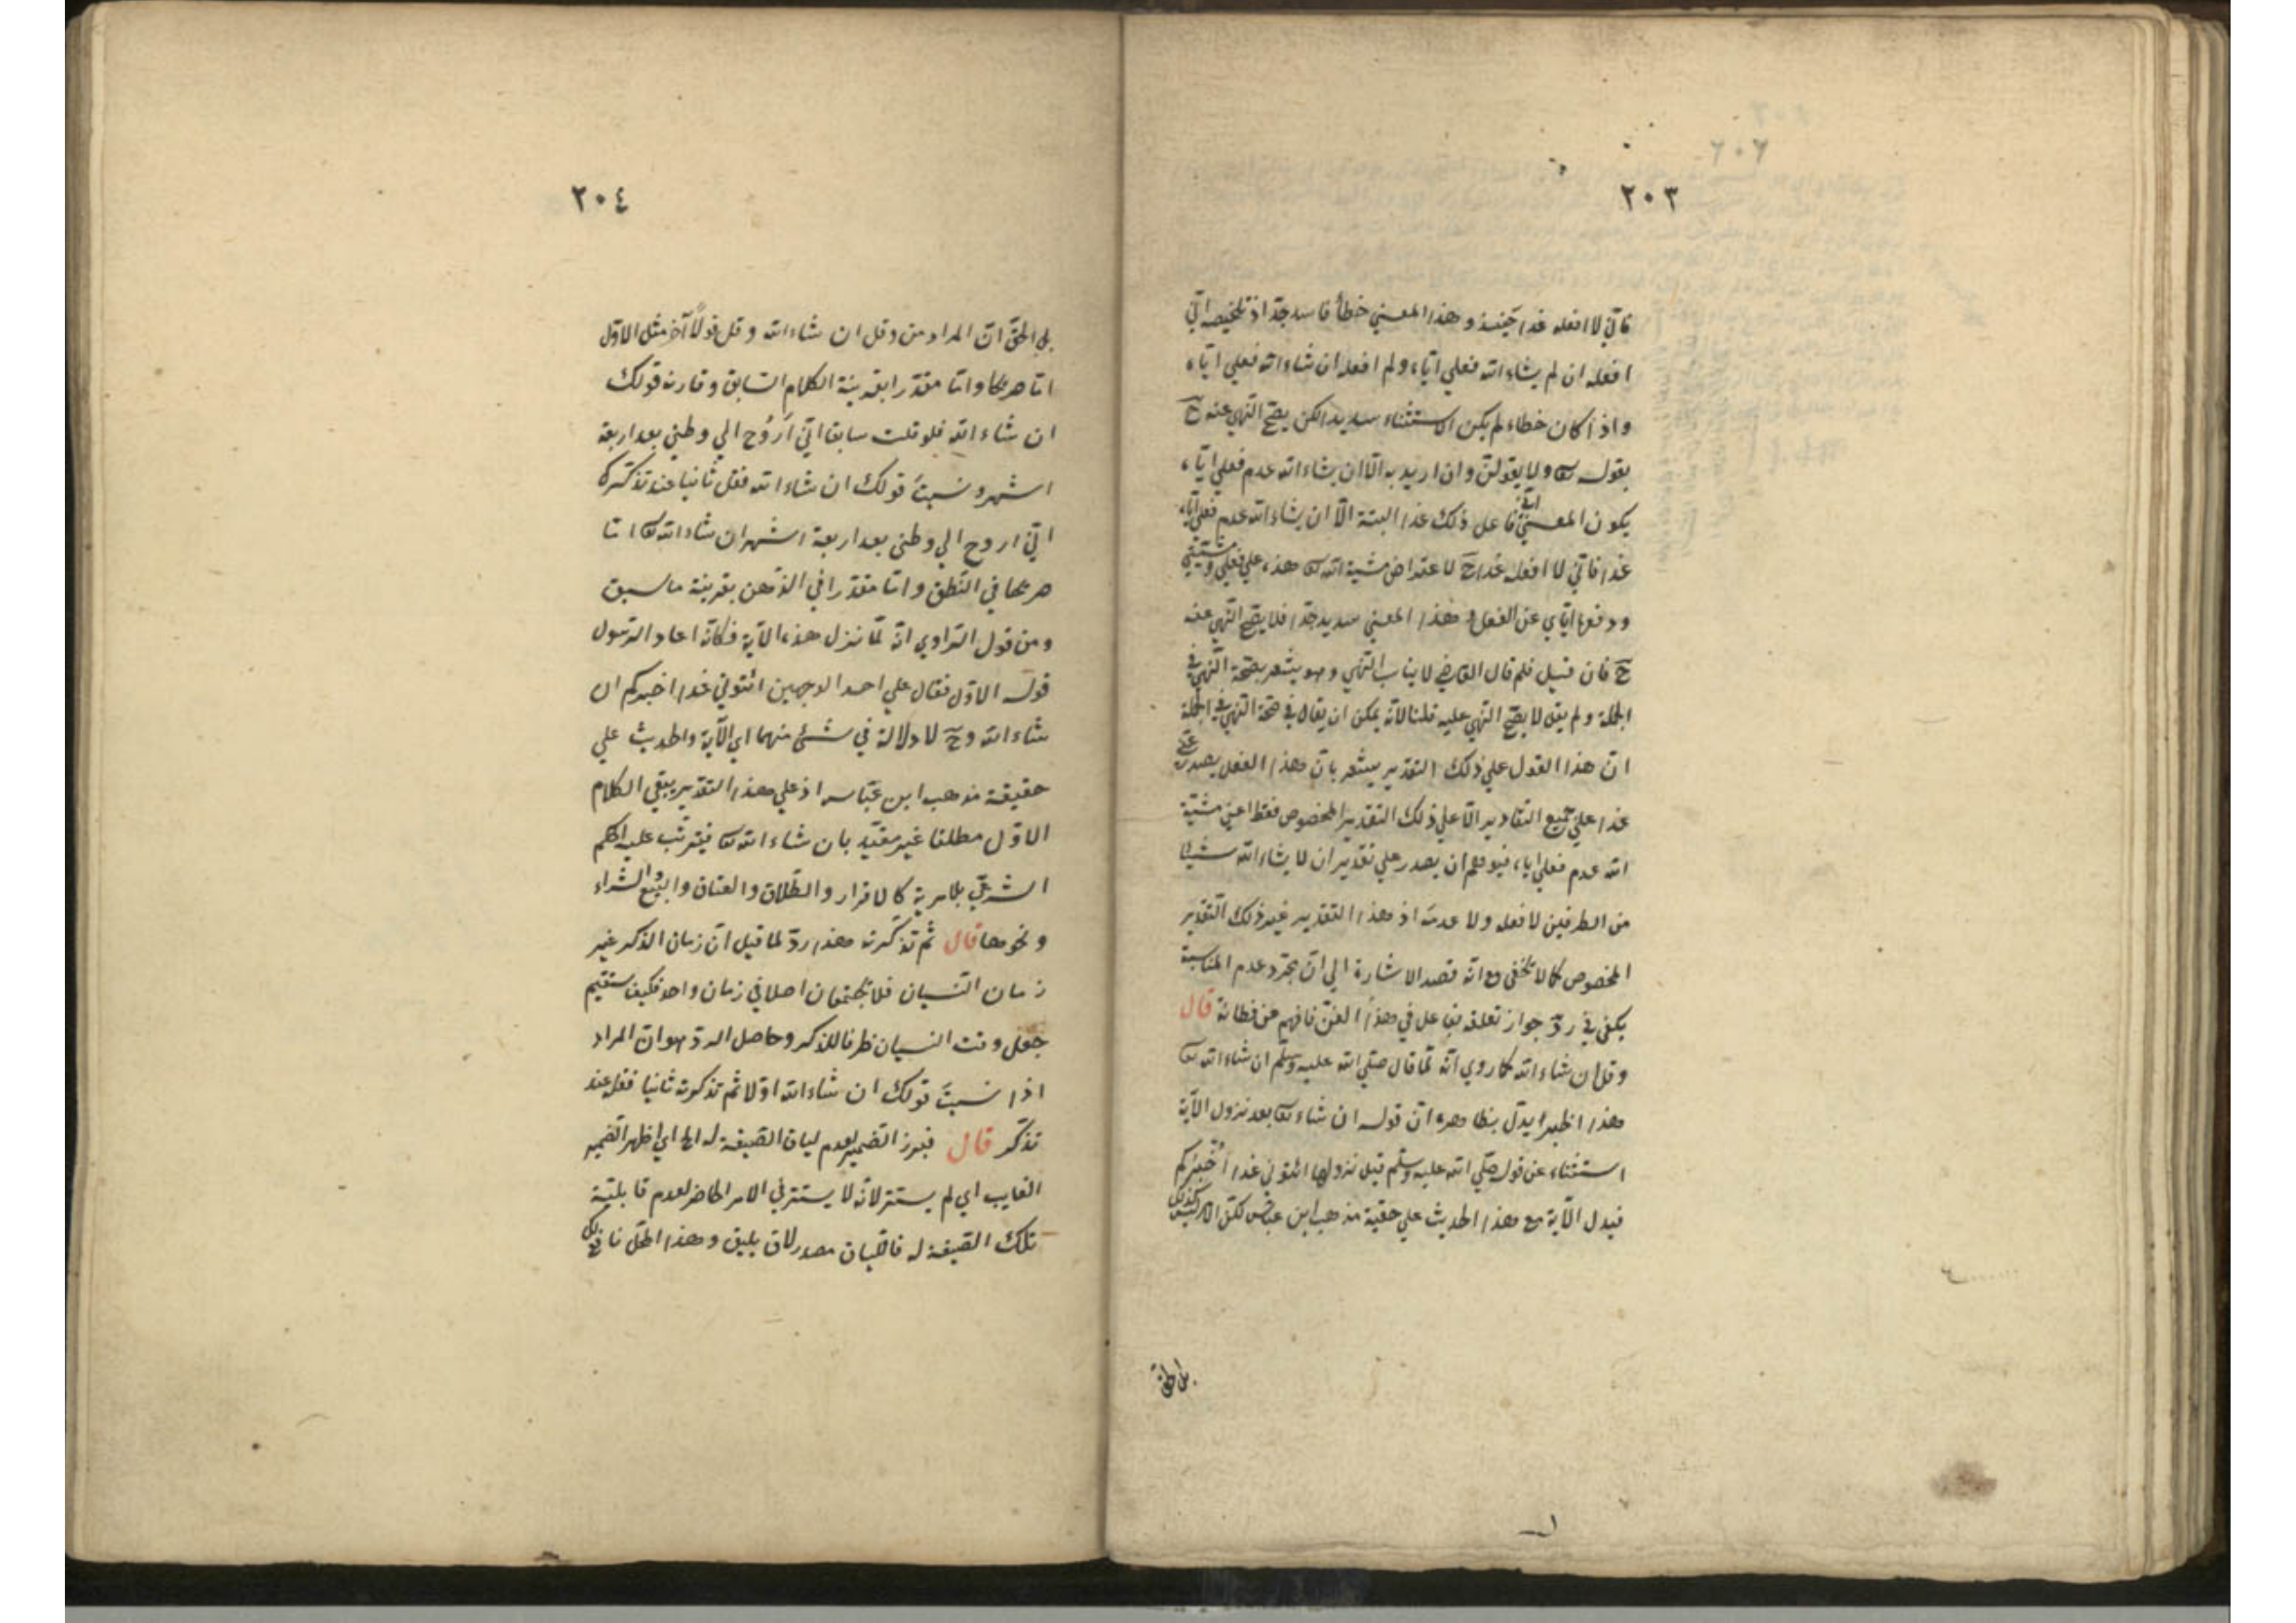 ٢٠٣
فاني لا افعله غدا حينئذ وهذا المعني خطأ فاسد جدّا اذ تلخيصه اني
افعله ان لم يشاء الله فعلي اياه ولم افعله ان شاء الله فعلي اياه
واذا كان خطاء لم يكن الاستثناء سديدا لكن يصح النهي عنه ح
بقوله تع ولا يقولن وان اريد به الا ان يشاء الله عدم فعلي اياه
يكون المعني اني فاعل ذلك غدا البتة الا ان يشاء الله عدم فعلي اياه
غدا فاني لا افعله غدا ح لاعتراض مشية الله تع هذه علي فعلي ومشيتي
ودفعها اياي عن الفعل وهذا المعني سديد جدّا فلا يصح النهي عنه
ح فان قيل فلم قال القاضي لا يناسب النهي وهو يشعر بصحة النهي في
الجملة ولم يقل لا يصح النهي عليه قلنا لانه يمكن ان يقال في صحة النهي في الجملة
ان هذا القول علي ذلك التقدير يشعر بان هذا الفعل يصدر عني
غدا علي جميع التقادير الا علي ذلك التقدير المخصوص فقط اعني مشية
الله عدم فعلي اياه فيوهم ان يصدر علي تقدير ان لا يشاء الله شيئا
من الطرفين لا فعله ولا عدمه اذ هذا التقدير غير ذلك التقدير
المخصوص كما لا تخفى مع انه قصد الاشارة الي ان مجرد عدم المناسبة
يكفي في ردّ جواز تعلقه بفاعل في هذا الفن فافهم عن فطانة قال
وقل ان شاء الله كما روي انه لما قال صلي الله عليه وسلم ان شاء الله تع
هذا اظهر ايدل بظاهره ان قوله ان شاء تع بعد نزول الآية
استثناء عن قوله صلي الله عليه وسلم قبل نزولها ائتوني غدا اُخْبِرْكم
فيدل الآية مع هذا الحديث علي حقية مذهب ابن عباس لكن الامر ليس كذلك
بل الحق
٢٠٤
بل الحق ان المراد من وقل ان شاء الله وقل قولاً آخر مثل الاول
اما صريحا واما مقدرا بقرينة الكلام السابق وقارنه قولك
ان شاء الله فلو قلت سابقا اني اَرُوُح الي وطني بعد اربعة
اشهر ونسيتَ قولك ان شاء الله فقل ثانيا عند تذكرك
اني اروح الي وطني بعد اربعة اشهر ان شاء الله تع اما
صريحا في النطق واما مقدرا في الذهن بقرينة ما سبق
ومن قول الراوي انه لما نزل هذه الآية فكانه اعاد الرسول
قوله الاول فقال علي احد الوجهين ائتوني غدا اخبركم ان
شاء الله وح لا دلالة في شئ منهما اي الآية والحديث علي
حقيقة مذهب ابن عباس اذ علي هذا التقدير يبقي الكلام
الاول مطلقا غير مقيد بان شاء الله تع فيترتب عليه الحكم
الشرعي بلا مرية كالاقرار والطلاق والعتاق والبيع والشراء
ونحوها قال ثم تذكرته هذا ردّ لما قيل ان زمان الذكر غير
زمان النسيان فلا يجتمعان اصلا في زمان واحد فكيف يستقيم
جعل وقت النسيان ظرفا للذكر وحاصل الردّ هو ان المراد
اذا نسيتَ قولك ان شاء الله اولا ثم تذكرته ثانيا فقله عند
تذكر قال فبرز الضمير لعدم لياق الصيغة له الخ اي اظهر الضمير
الغايب اي لم يستتر لانه لا يستتر في الامر الحاضر لعدم قابلية
تلك الصيغة له فاللياق مصدر لاق يليق وهذا الحل نافع لك